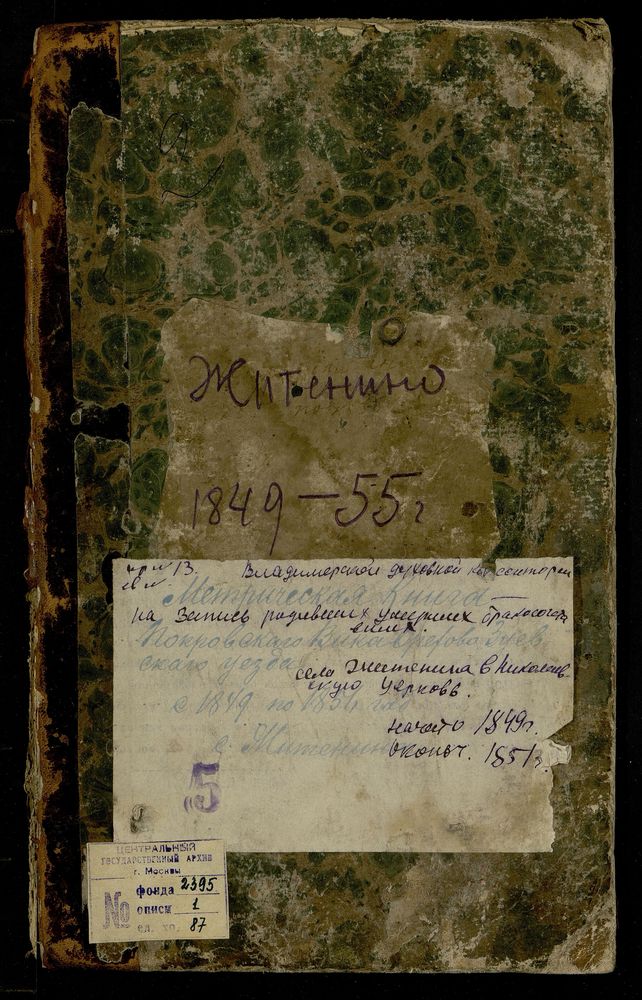 2
Житенино
1849-55г
№ 13. Владимерской духовной консистории
Метрическая Книга
на Запись родившихся умерших бракосочета
Покровского
ского уезда
села Житенина в Николаев-
скую Церковь.
с 1849 по год
начато 1849г.
с. Житенино
оконч. 1851г.
5
ЦЕНТРАЛЬНЫЙ
ГОСУДАРСТВЕННЫЙ АРХИВ
г. Москвы
№
фонда 2395
описи 1
ед. хр. 87